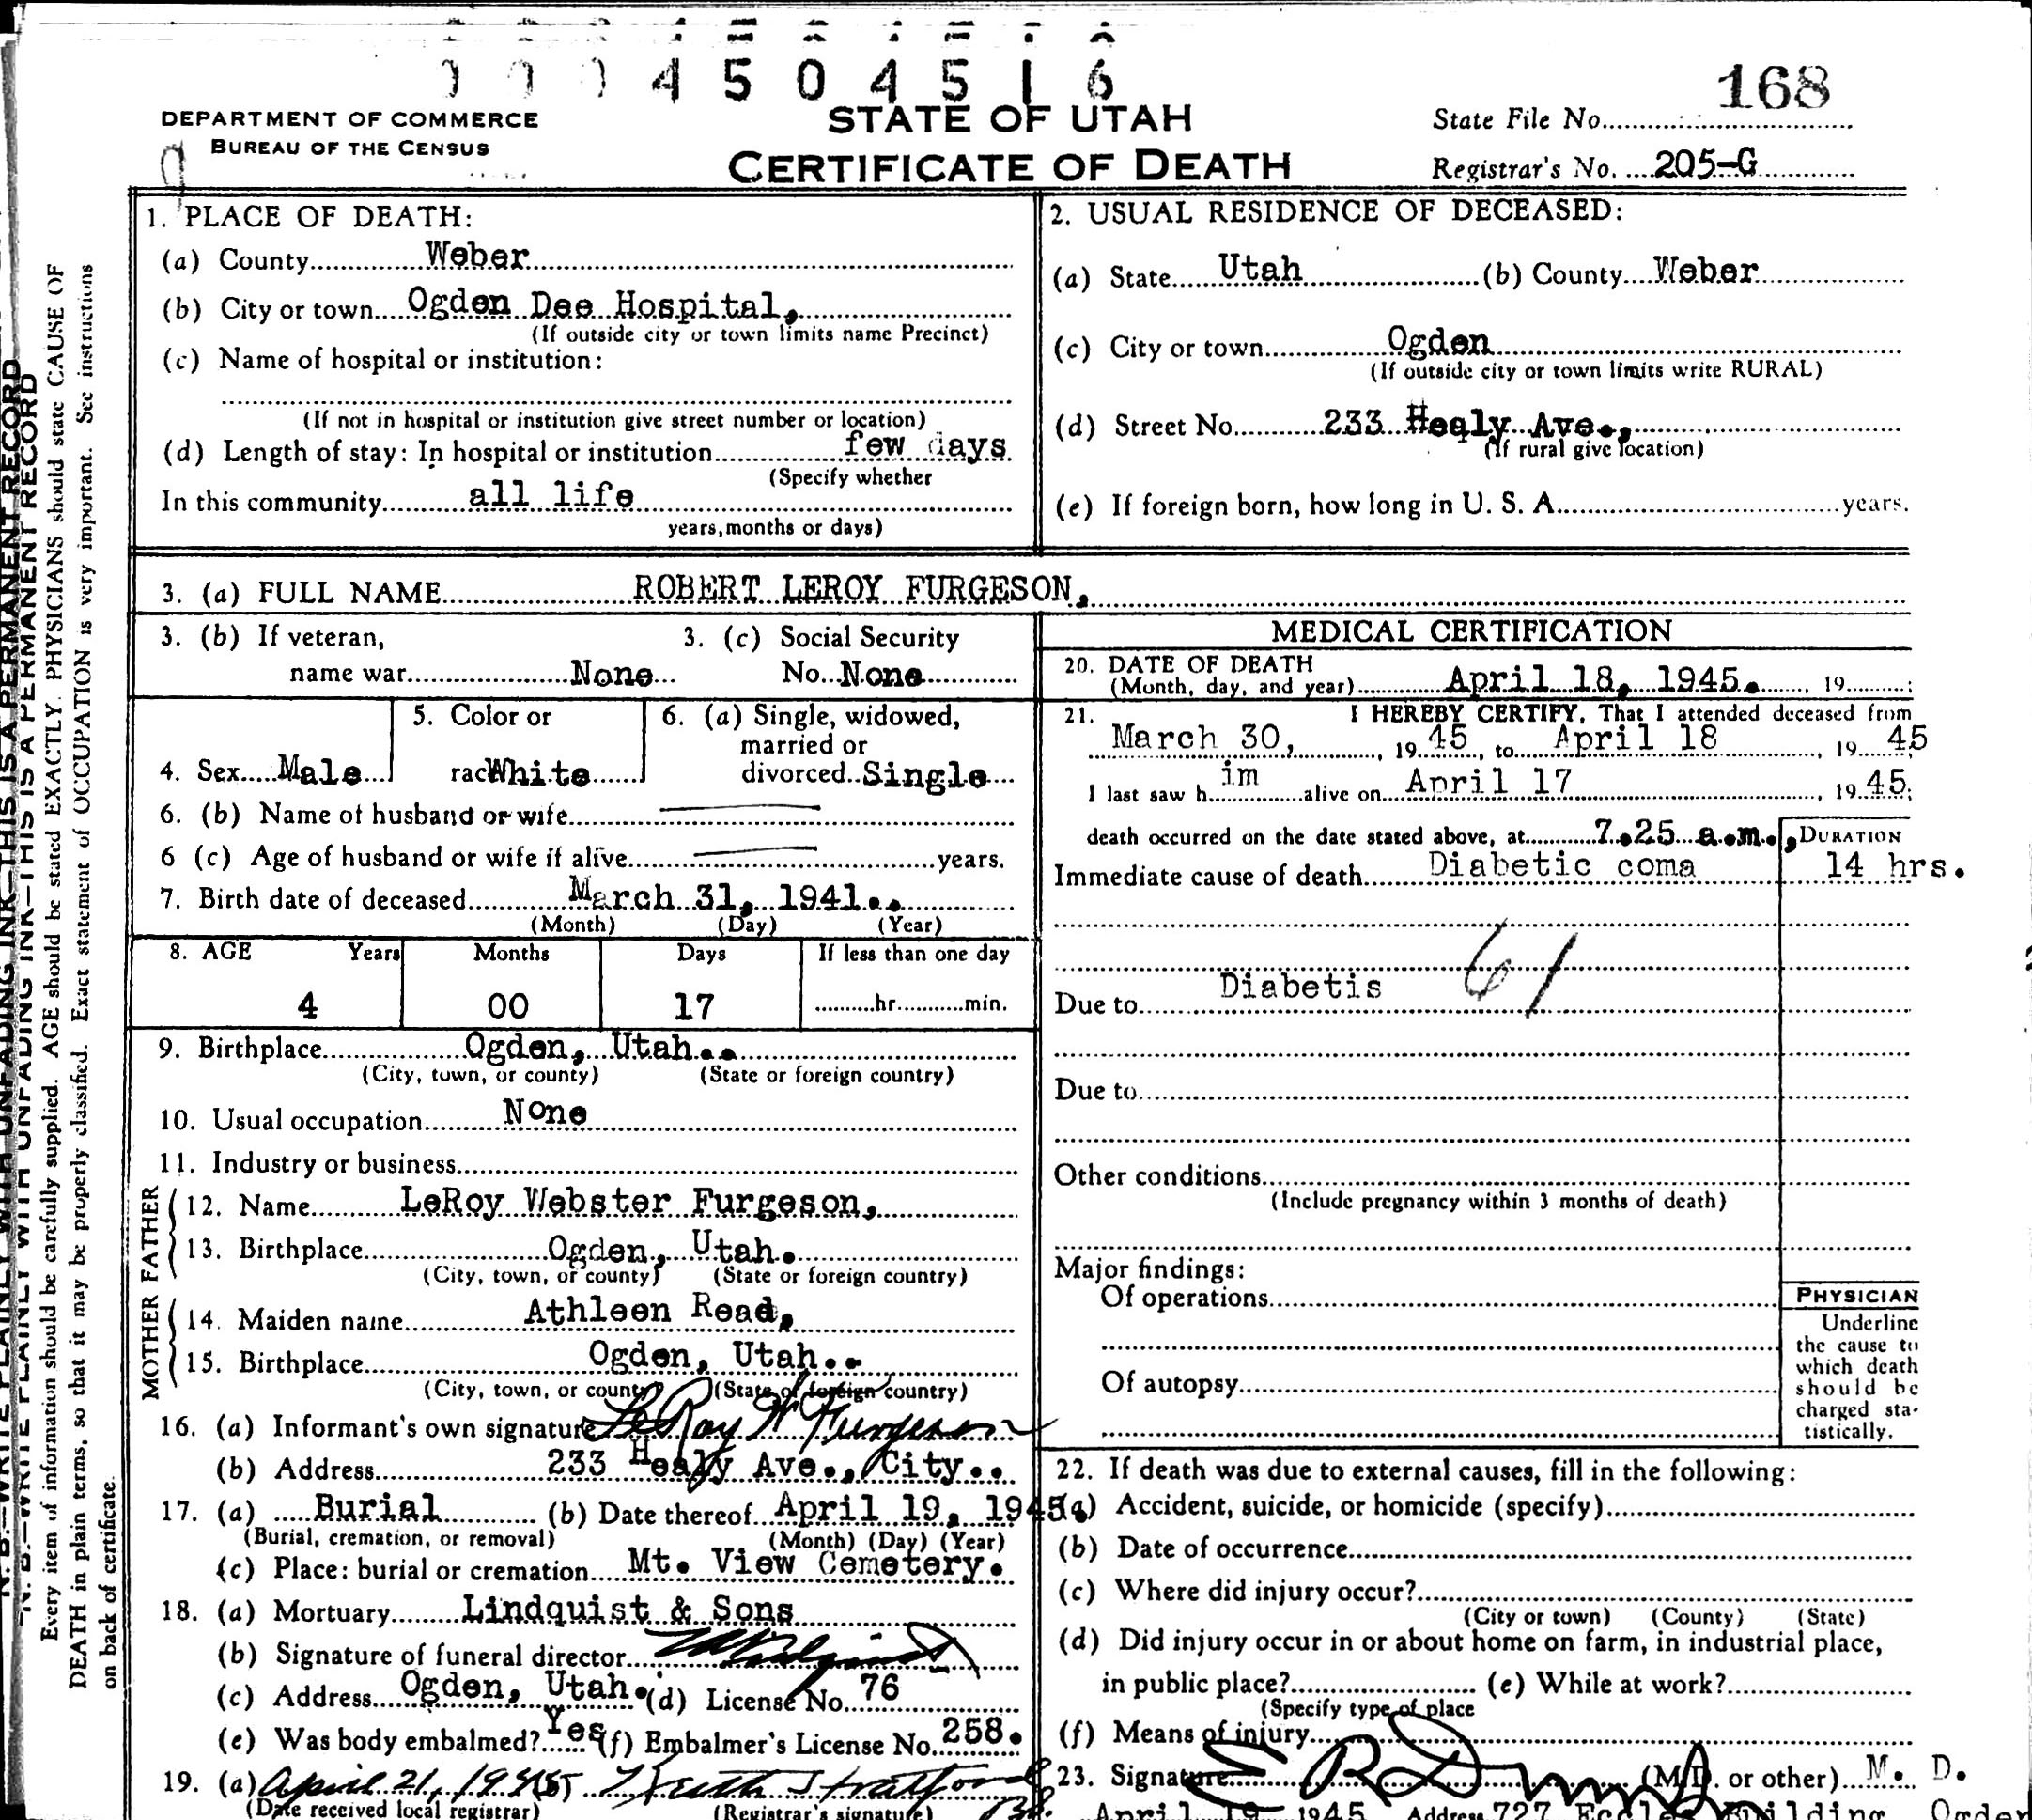 4 5 0 4 5 1 6
DEPARTMENT OF COMMERCE
BUREAU OF THE CENSUS
STATE OF UTAH
CERTIFICATE OF DEATH
State File No. 168
Registrar's No. 205-G
1. PLACE OF DEATH:
(a) County Weber
(b) City or town Ogden Dee Hospital,
(If outside city or town limits name Precinct)
(c) Name of hospital or institution:
(If not in hospital or institution give street number or location)
(d) Length of stay: In hospital or institution few days
(Specify whether
In this community all life
years, months or days)
2. USUAL RESIDENCE OF DECEASED:
(a) State Utah (b) County Weber
(c) City or town Ogden
(If outside city or town limits write RURAL)
(d) Street No. 233 Healy Ave.,
(If rural give location)
(e) If foreign born, how long in U. S. A. years.
3. (a) FULL NAME ROBERT LEROY FURGESON,
3. (b) If veteran, 3. (c) Social Security
name war None No. None
4. Sex Male
5. Color or
race White
6. (a) Single, widowed,
married or
divorced Single
6. (b) Name of husband or wife
6 (c) Age of husband or wife if alive years.
7. Birth date of deceased March 31, 1941..
(Month) (Day) (Year)
8. AGE Years Months Days If less than one day
4 00 17 hr. min.
9. Birthplace Ogden, Utah..
(City, town, or county) (State or foreign country)
10. Usual occupation None
11. Industry or business
FATHER
12. Name LeRoy Webster Furgeson,
13. Birthplace Ogden, Utah.
(City, town, or county) (State or foreign country)
MOTHER
14. Maiden name Athleen Read,
15. Birthplace Ogden, Utah..
(City, town, or county) (State of foreign country)
16. (a) Informant's own signature LeRoy W Furgeson
(b) Address 233 Healy Ave., City..
17. (a) Burial (b) Date thereof April 19, 1945.
(Burial, cremation, or removal) (Month) (Day) (Year)
(c) Place: burial or cremation Mt. View Cemetery.
18. (a) Mortuary Lindquist & Sons
(b) Signature of funeral director
(c) Address Ogden, Utah. (d) License No. 76
(e) Was body embalmed? Yes (f) Embalmer's License No. 258.
19. (a) April 21, 1945 (b)
(Date received local registrar) (Registrar's signature)
MEDICAL CERTIFICATION
20. DATE OF DEATH
(Month, day, and year) April 18, 1945. , 19 ;
21. I HEREBY CERTIFY, That I attended deceased from
March 30, , 19 45, to April 18 , 19 45
I last saw h im alive on April 17 , 19 45;
death occurred on the date stated above, at 7.25 a.m.,
DURATION
Immediate cause of death Diabetic coma 14 hrs.
61
Due to Diabetis
Due to
Other conditions
(Include pregnancy within 3 months of death)
Major findings:
Of operations
Of autopsy
PHYSICIAN
Underline
the cause to
which death
should be
charged sta-
tistically.
22. If death was due to external causes, fill in the following:
(a) Accident, suicide, or homicide (specify)
(b) Date of occurrence
(c) Where did injury occur?
(City or town) (County) (State)
(d) Did injury occur in or about home on farm, in industrial place,
in public place? (e) While at work?
(Specify type of place
(f) Means of injury
23. Signature (M.D. or other) M. D.
1945 Address 727 Eccles Building Ogden
N. B.—WRITE PLAINLY WITH UNFADING INK—THIS IS A PERMANENT RECORD
N. B.—WRITE PLAINLY WITH UNFADING INK—THIS IS A PERMANENT RECORD
Every item of information should be carefully supplied. AGE should be stated EXACTLY. PHYSICIANS should state CAUSE OF
DEATH in plain terms, so that it may be properly classified. Exact statement of OCCUPATION is very important. See instructions
on back of certificate.